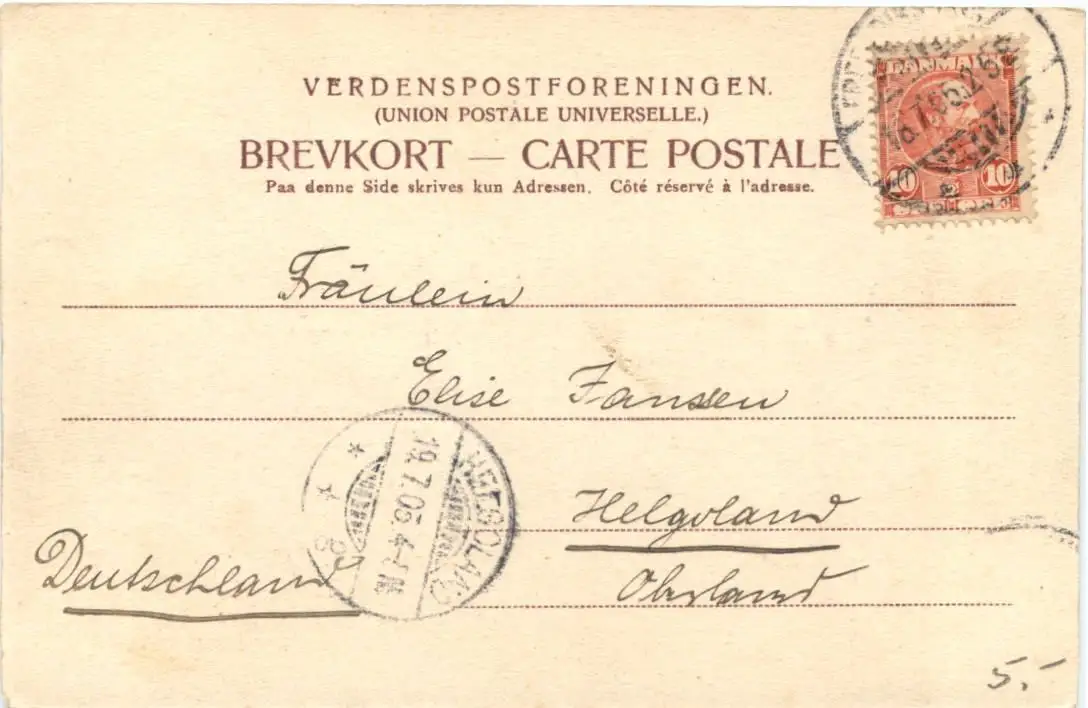 VERDENSPOSTFORENINGEN.
(UNION POSTALE UNIVERSELLE.)
BREVKORT — CARTE POSTALE
Paa denne Side skrives kun Adressen. Côté réservé à l'adresse.
DANMARK
10 10
Fräulein
Elise Jansen
HELGOLAND
19.7.05.4-5N.
Helgoland
Deutschland
Oberland
5.-